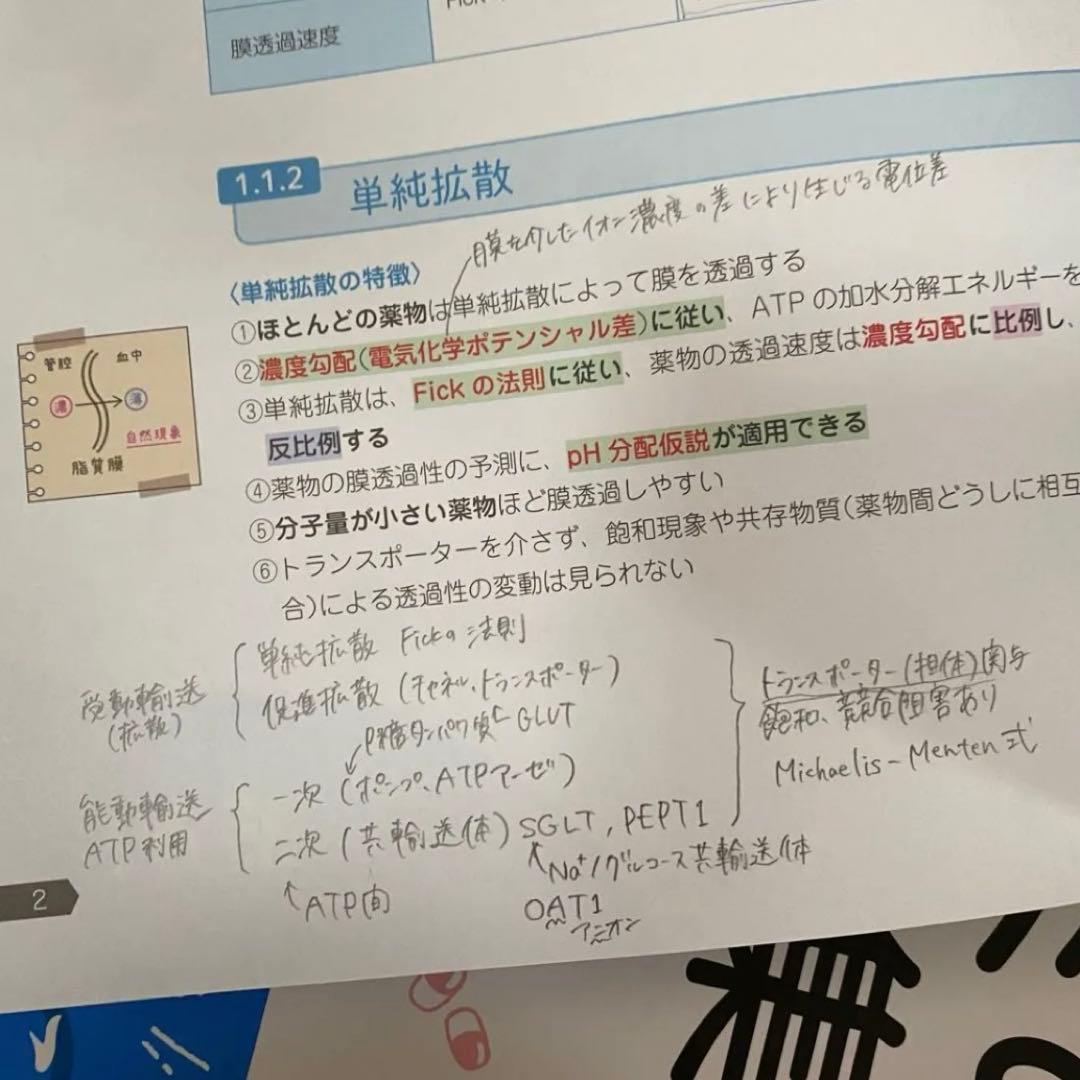 膜透過速度
1.1.2 単純拡散
膜を介したイオン濃度の差により生じる電位差
〈単純拡散の特徴〉
①ほとんどの薬物は単純拡散によって膜を透過する
②濃度勾配(電気化学ポテンシャル差)に従い、ATPの加水分解エネルギーを
③単純拡散は、Fickの法則に従い、薬物の透過速度は濃度勾配に比例し、
反比例する
④薬物の膜透過性の予測に、pH分配仮説が適用できる
⑤分子量が小さい薬物ほど膜透過しやすい
⑥トランスポーターを介さず、飽和現象や共存物質(薬物間どうしに相互
合)による透過性の変動は見られない
管腔 血中
濃 薄
自然現象
脂質膜
受動輸送
(拡散)
単純拡散 Fickの法則
促進拡散(チャネル、トランスポーター)
P糖タンパク質 GLUT
能動輸送
ATP利用
一次(ポンプ、ATPアーゼ)
二次(共輸送体)SGLT, PEPT1
↑Na⁺/グルコース共輸送体
↑ATP間
OAT1
アニオン
トランスポーター(担体)関与
飽和、競合阻害あり
Michaelis-Menten式
2